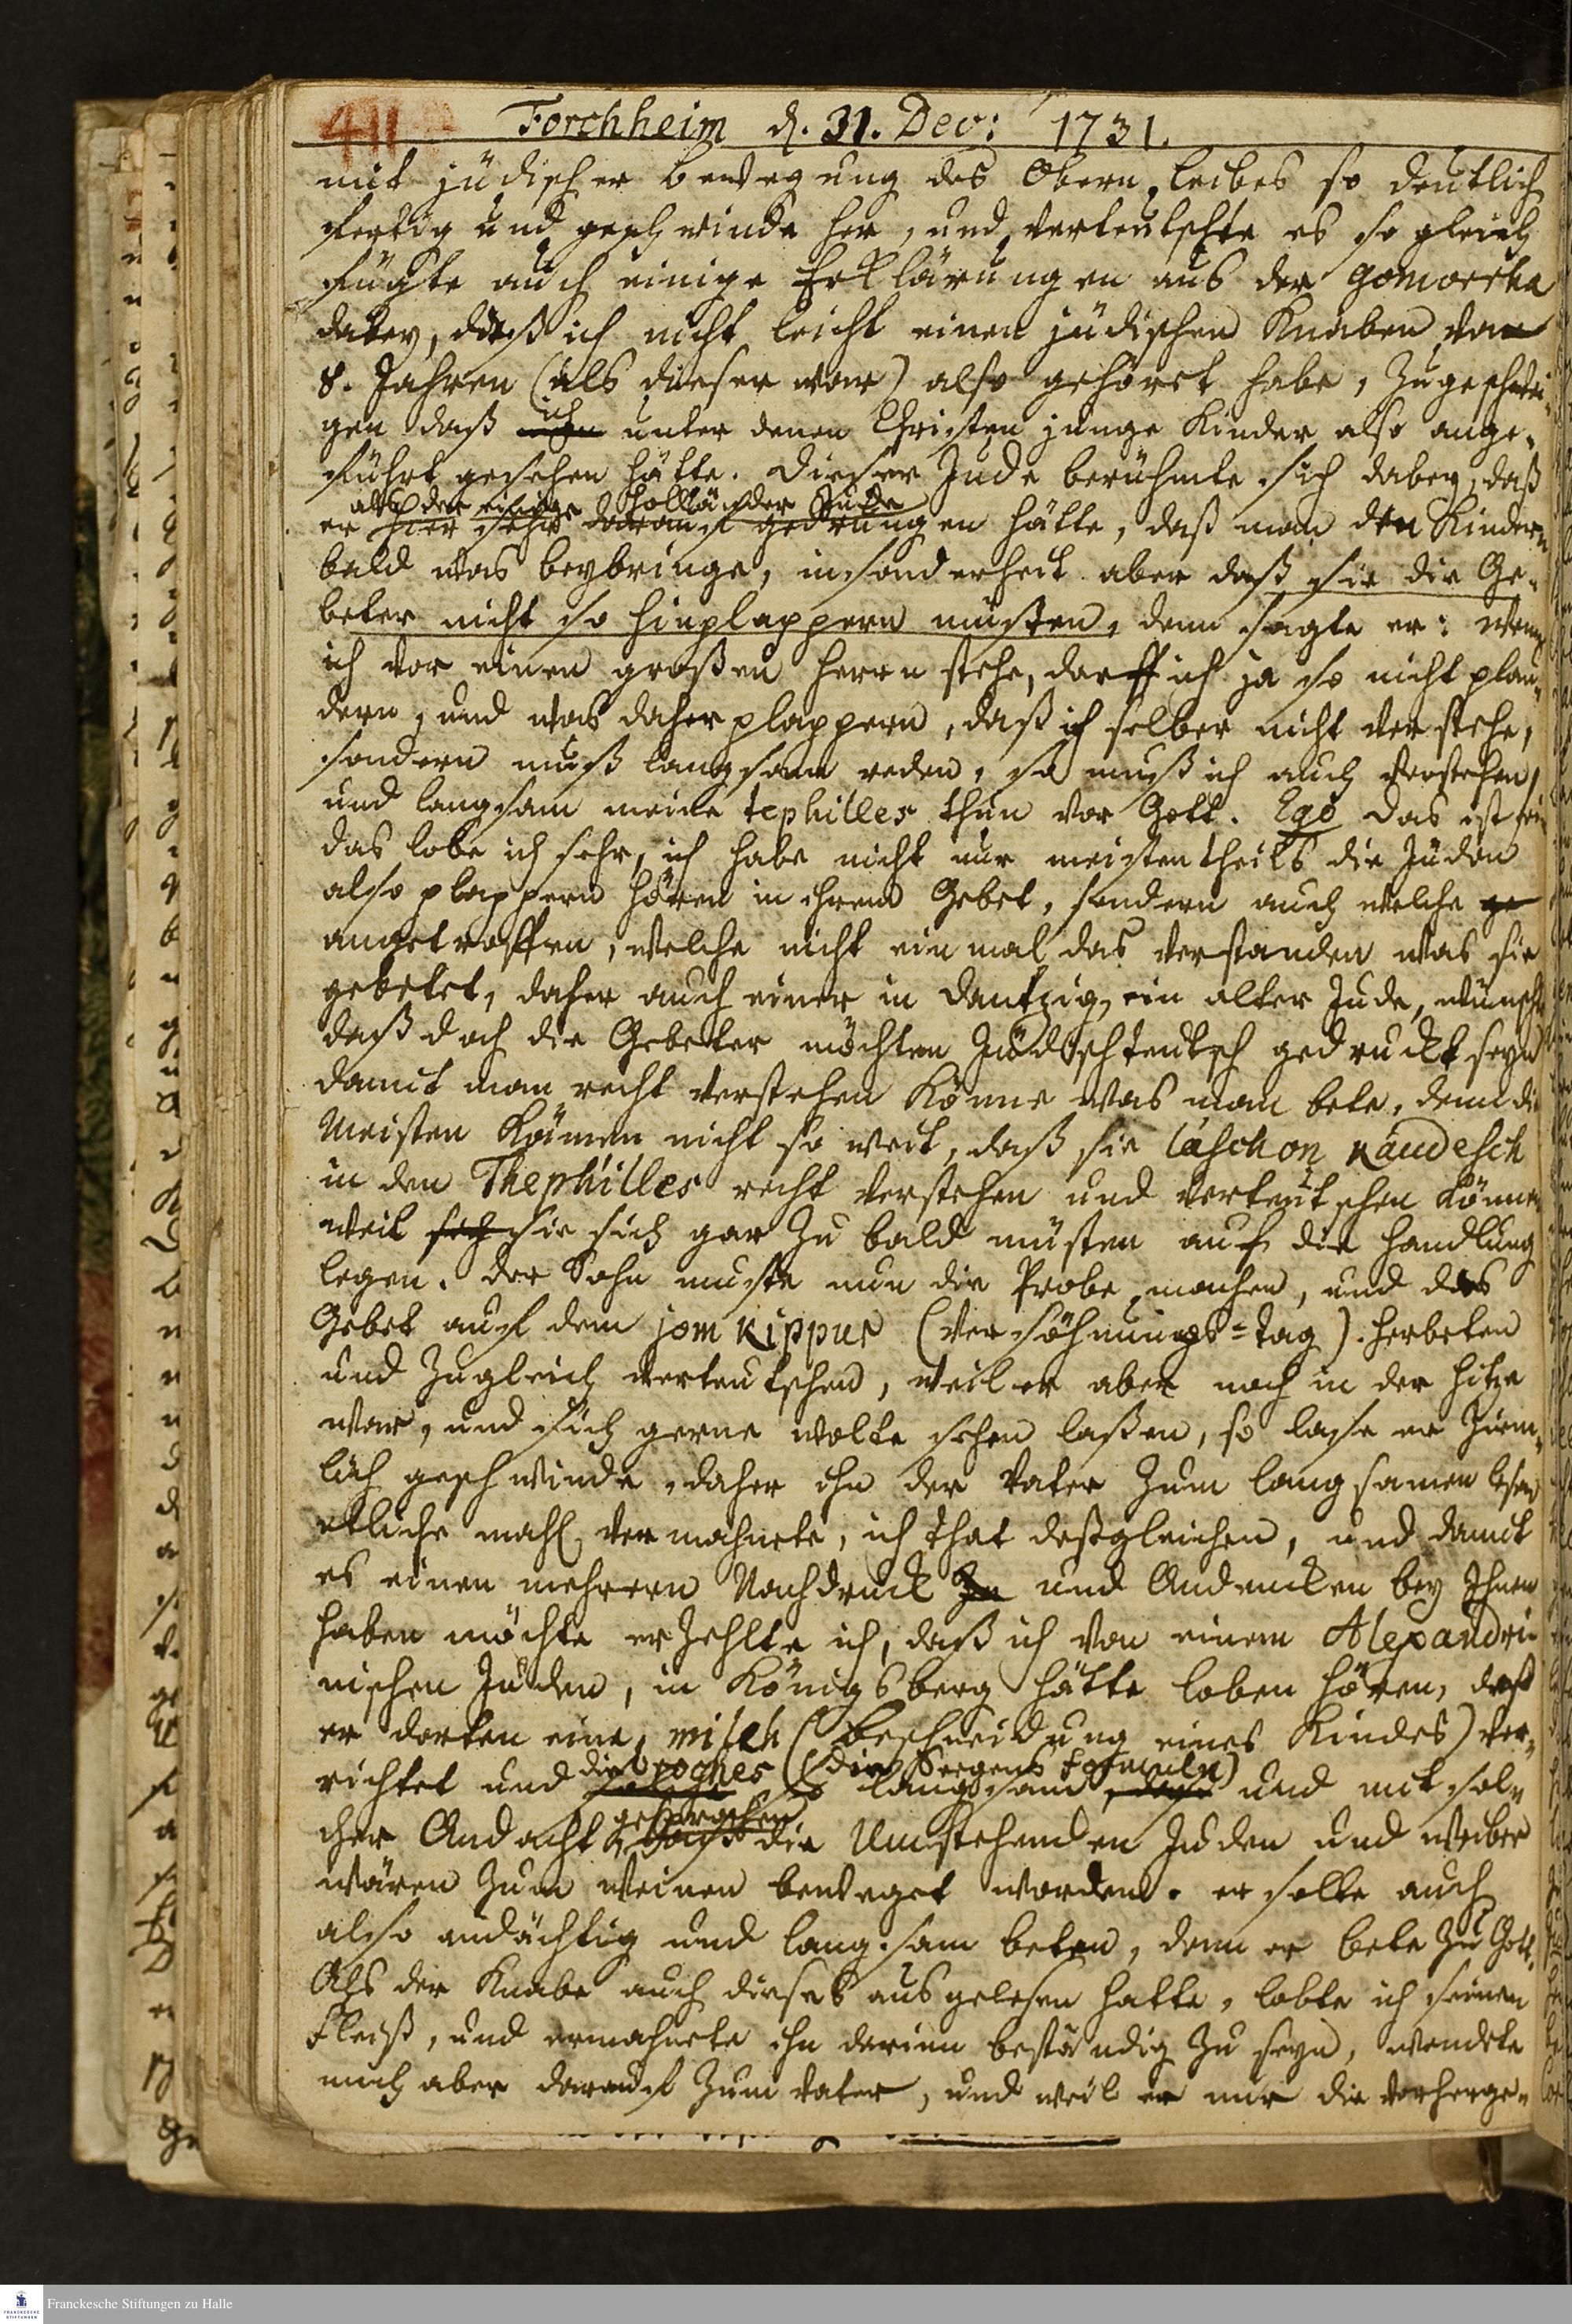 411 Forchheim d. 31. Dec: 1731.
mit jüdischer bewegung des Obern leibes so deutlich
fertig und geschwinde her, und verteutschte es so gleich
fügte auch einige Erklärungen aus der gomorrha
dabey, daß ich nicht leicht einen jüdischen Knaben von
8. Jahren (als dieser war) also gehöret habe, zugeschwei-
gen daß ich unter denen Christen junge Kinder also ange-
führt gesehen hätte. Dieser Jude berühmte sich dabey, daß
als der einige Holländer Jude
er hier sehr darauf gedrungen hätte, daß man den Kindern
bald was beybringe, insonderheit aber daß sie die Ge-
beter nicht so hinplappern müsten, denn sagte er: wenn
ich vor einen großen Herrn stehe, darff ich ja so nicht plau-
dern, und was daher plappern, daß ich selber nicht verstehe,
sondern muß langsam reden, so muß ich auch verstehen,
und langsam meine tephilles thun vor Gott. Ego das ist fein
das lobe ich sehr, ich habe nicht nur meistentheils die Juden
also plappern hören in ihrem Gebet, sondern auch welche
angetroffen, welche nicht einmal das verstanden was sie
gebetet, daher auch einer in Dantzig, ein alter Jude, wünschte
daß doch die Gebeter möchten Jüdischteutsch gedruckt seyn
damit man recht verstehen könne was man bete, denn die
Meisten kämen nicht so weit, daß sie laschon kaudesch
in den Thephilles recht verstehen und verteutschen können
weil sie sich gar zu bald müsten auf die Handlung
legen. Der Sohn muste nun die Probe machen, und das
Gebet auf dem jom kippur (Versöhnungs=tag) herbeten
und zugleich verteutschen, weil er aber noch in der Hitze
war, und sich gerne wolte sehen laßen, so lase er ziem-
lich geschwinde, daher ihn der Vater zum langsamen lesen
etliche mahl vermahnete, ich that deßgleichen, und damit
es einen mehrern Nachdruck und Andencken bey Ihnen
haben möchte erzehlte ich, daß ich von einem Alexandri-
nischen Juden, in Königsberg hätte loben hören, daß
er dorten eine milah (Beschneidung eines Kindes) ver-
die broghes (die Seegens Formuln)
richtet und so langsam und mit sol-
gesprochen
cher Andacht daß die Umstehenden Juden und Weiber
wären zum Weinen beweget worden. er solte auch
also andächtig und langsam beten, denn er bete zu Gott.
Als der Knabe auch dieses ausgelesen hatte, lobte ich seinen
Fleiß, und ermahnete ihn darinn beständig zu seyn, wendete
mich aber darauf zum Vater, und weil er mir die vorherge-
Franckesche Stiftungen zu Halle